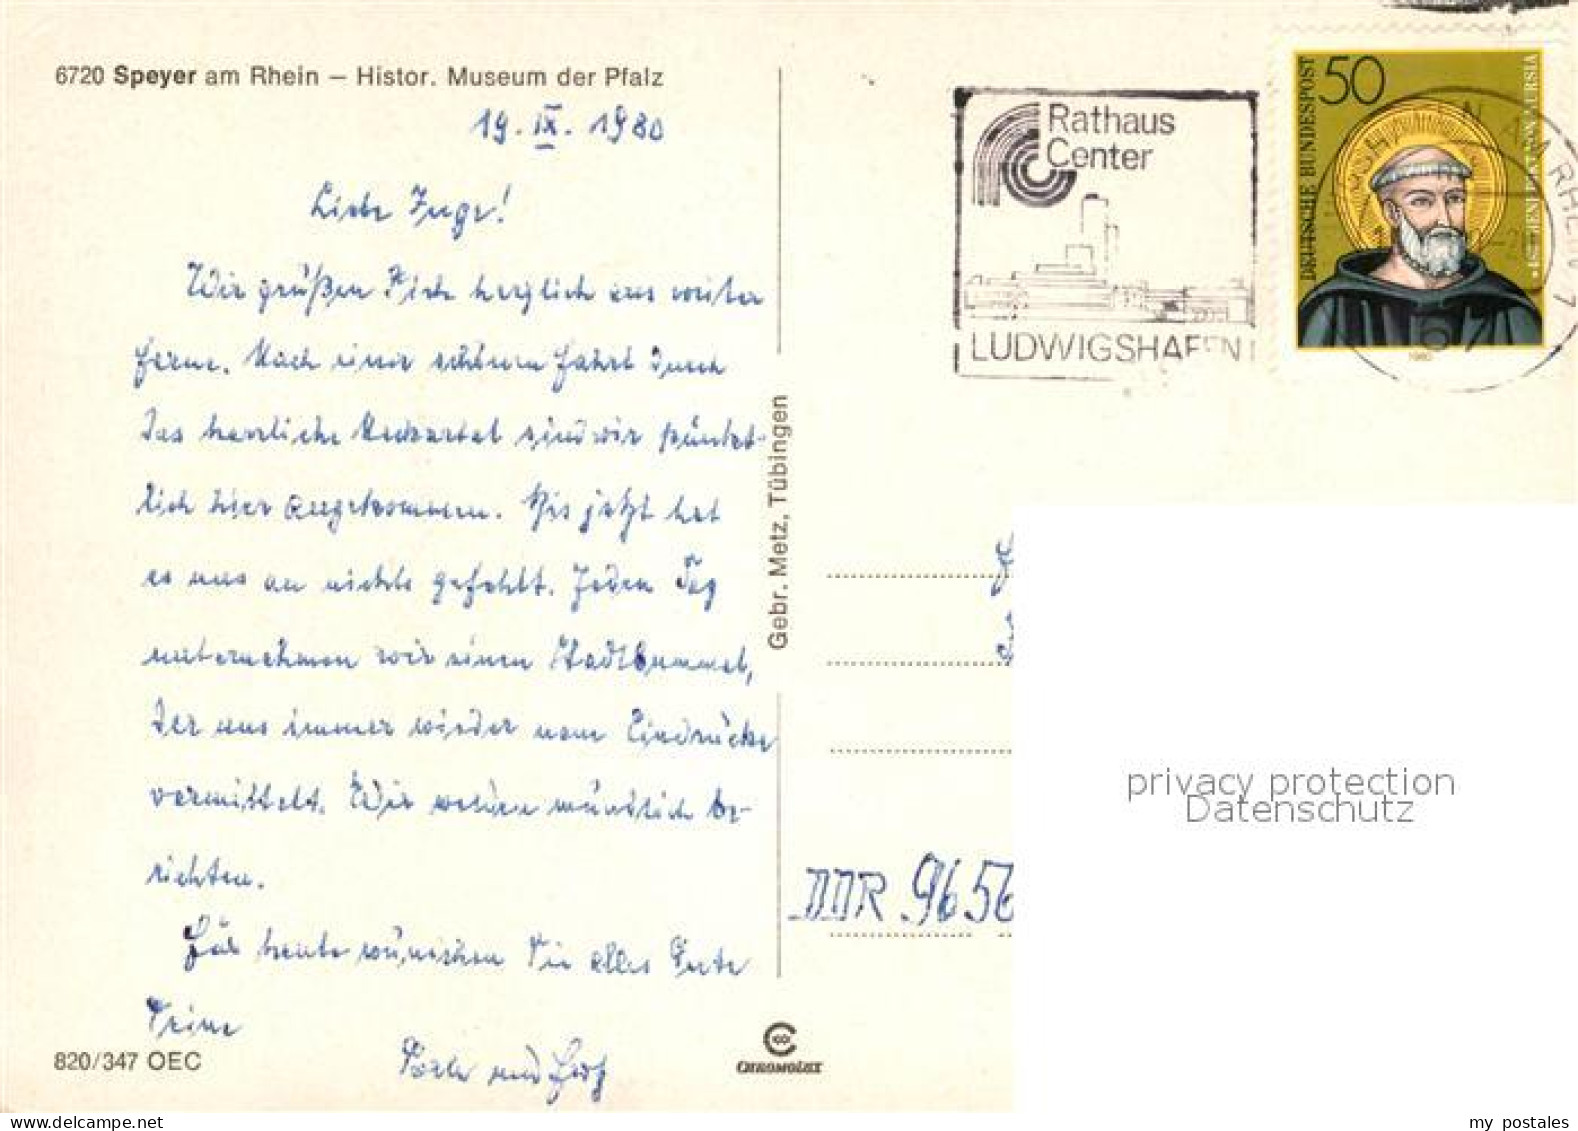 6720 Speyer am Rhein – Histor. Museum der Pfalz
19. IX. 1980
Liebe Inge!
Wir grüßen Dich herzlich aus weiter
Ferne. Nach einer schönen Fahrt durch
das herrliche Neckartal sind wir pünkt-
lich hier angekommen. Bis jetzt hat
es uns an nichts gefehlt. Jeden Tag
unternehmen wir einen Stadtbummel,
der uns immer wieder neue Eindrücke
vermittelt. Wir werden mündlich be-
richten.
Für heute wünschen Dir alles Gute
Deine
und
820/347 OEC
Gebr. Metz, Tübingen
CHROMOLUX
Rathaus
Center
LUDWIGSHAFEN
50
DEUTSCHE BUNDESPOST
BENEDIKT VON NURSIA
1980
AM RHEIN 7
67
DDR 9656
privacy protection
Datenschutz
my postales